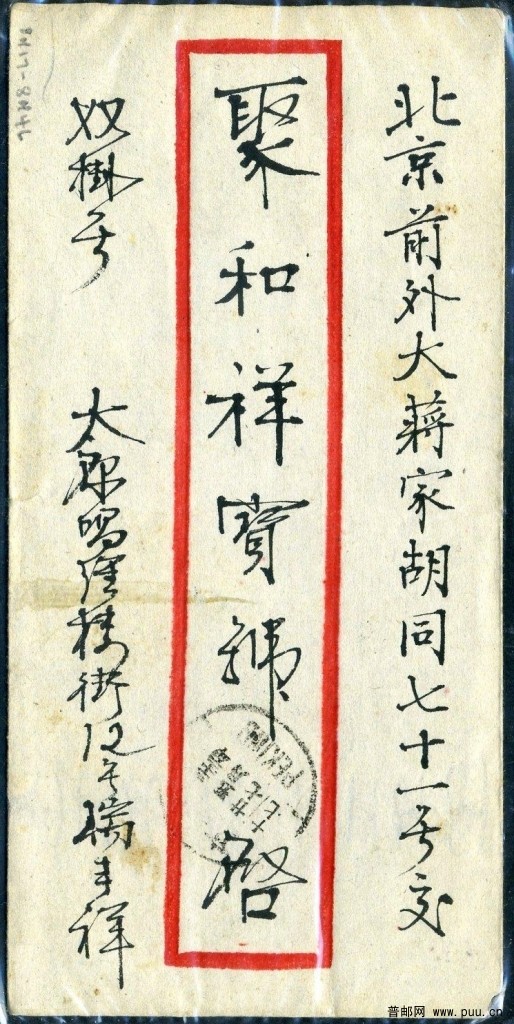 北京前外大蔣家胡同七十一号交
聚和祥寶號 啓
双掛号
太原 橋街12号瑞丰祥
PEKING
普邮网 www.puu.cn